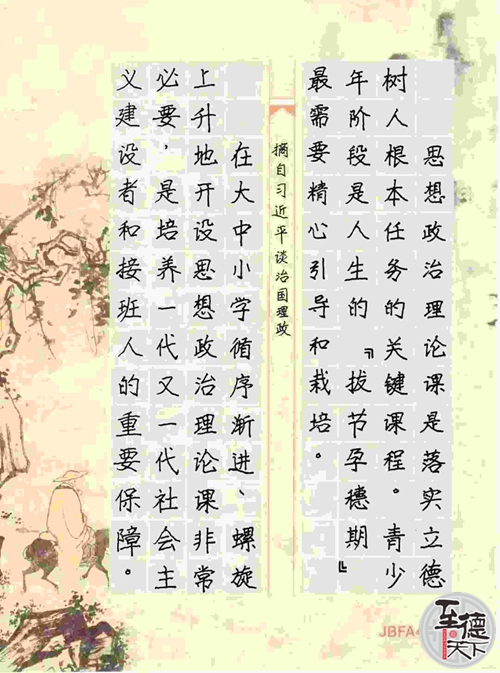 思想政治理论课是落实立德
树人根本任务的关键课程。青少
年阶段是人生的『拔节孕穗期』
最需要精心引导和栽培。
摘自习近平谈治国理政
在大中小学循序渐进、螺旋
上升地开设思想政治理论课非常
必要，是培养一代又一代社会主
义建设者和接班人的重要保障。
JBFA4
至德天下